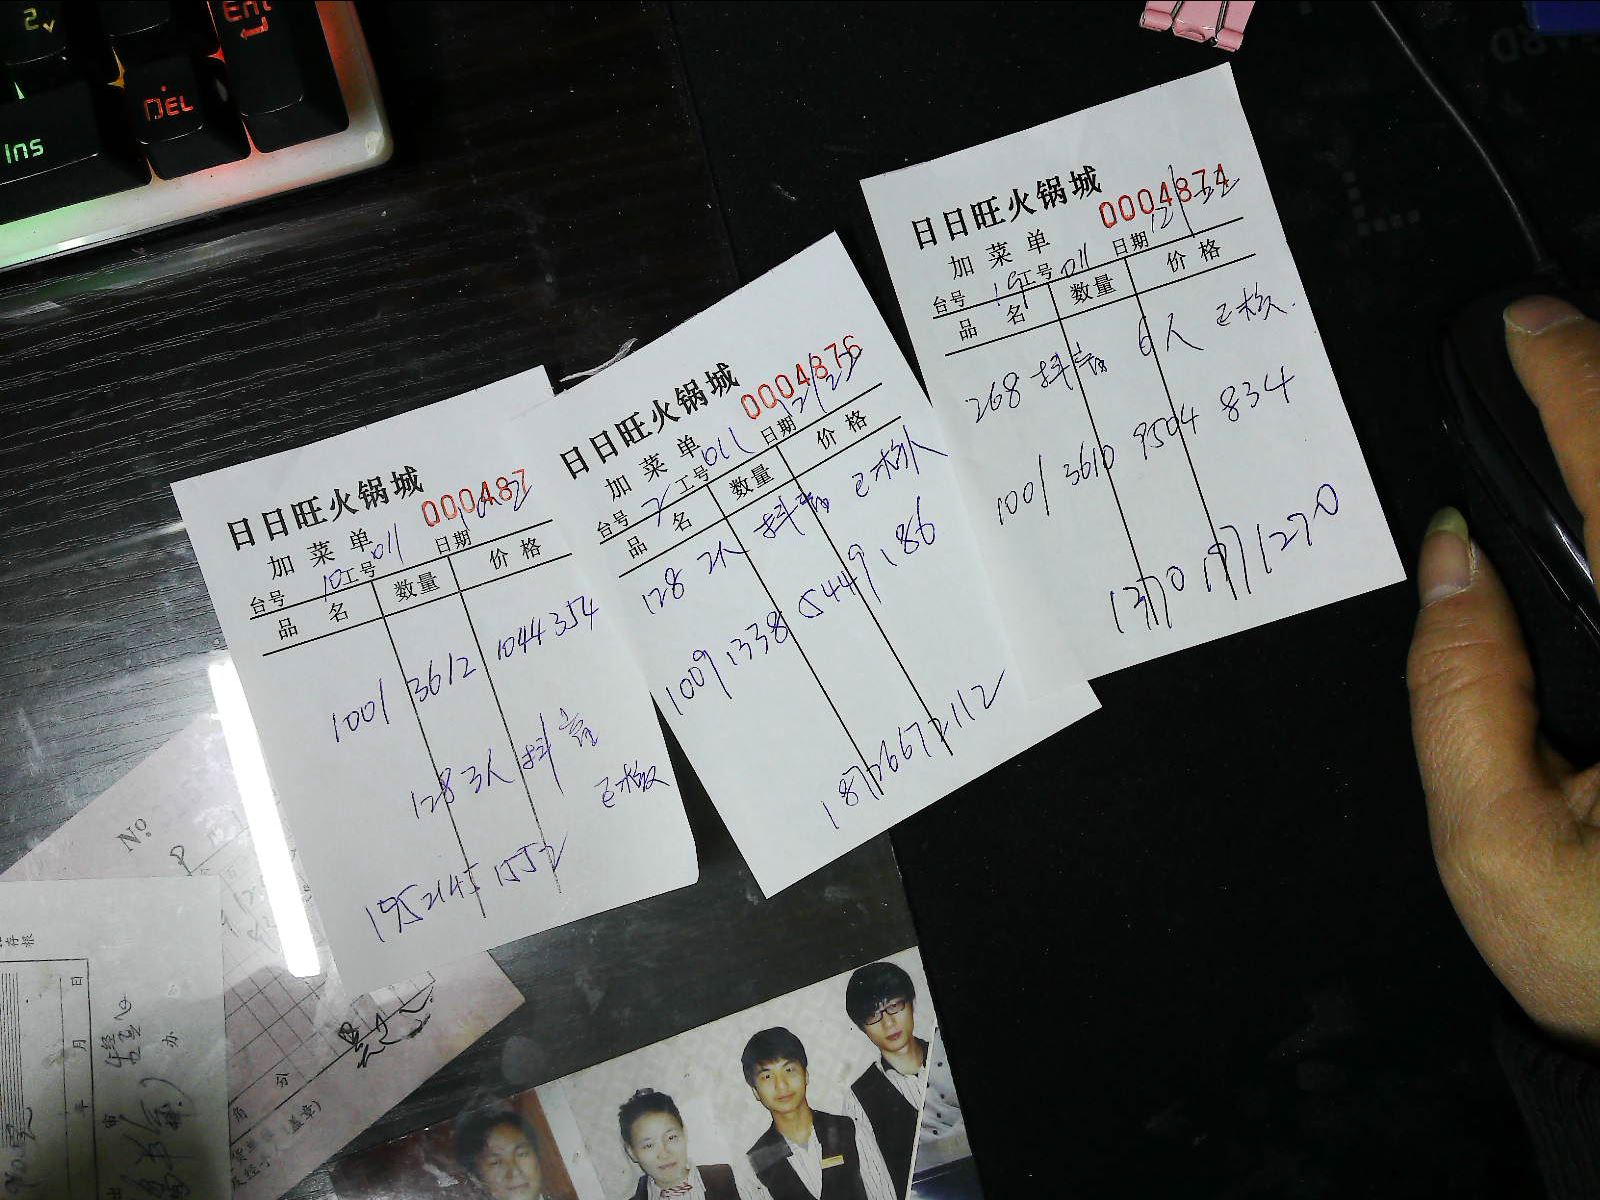 日日旺火锅城 000487
加菜单
台号 10 工号 011 日期
品名 数量 价格
1001 3612 1044354
128 3人 抖音
已核
日日旺火锅城 0004876
加菜单
台号 工号 011 日期 12/22
品名 数量 价格
128 2人 抖音 已核
1009 1338 5449 186
18726672112
日日旺火锅城 0004874
加菜单
台号 19 工号 011 日期 12/22
品名 数量 价格
268 抖音 6人 已核
1001 3610 9504 834
Ins
DEL
Ent
No
存根
年 月 日
经办